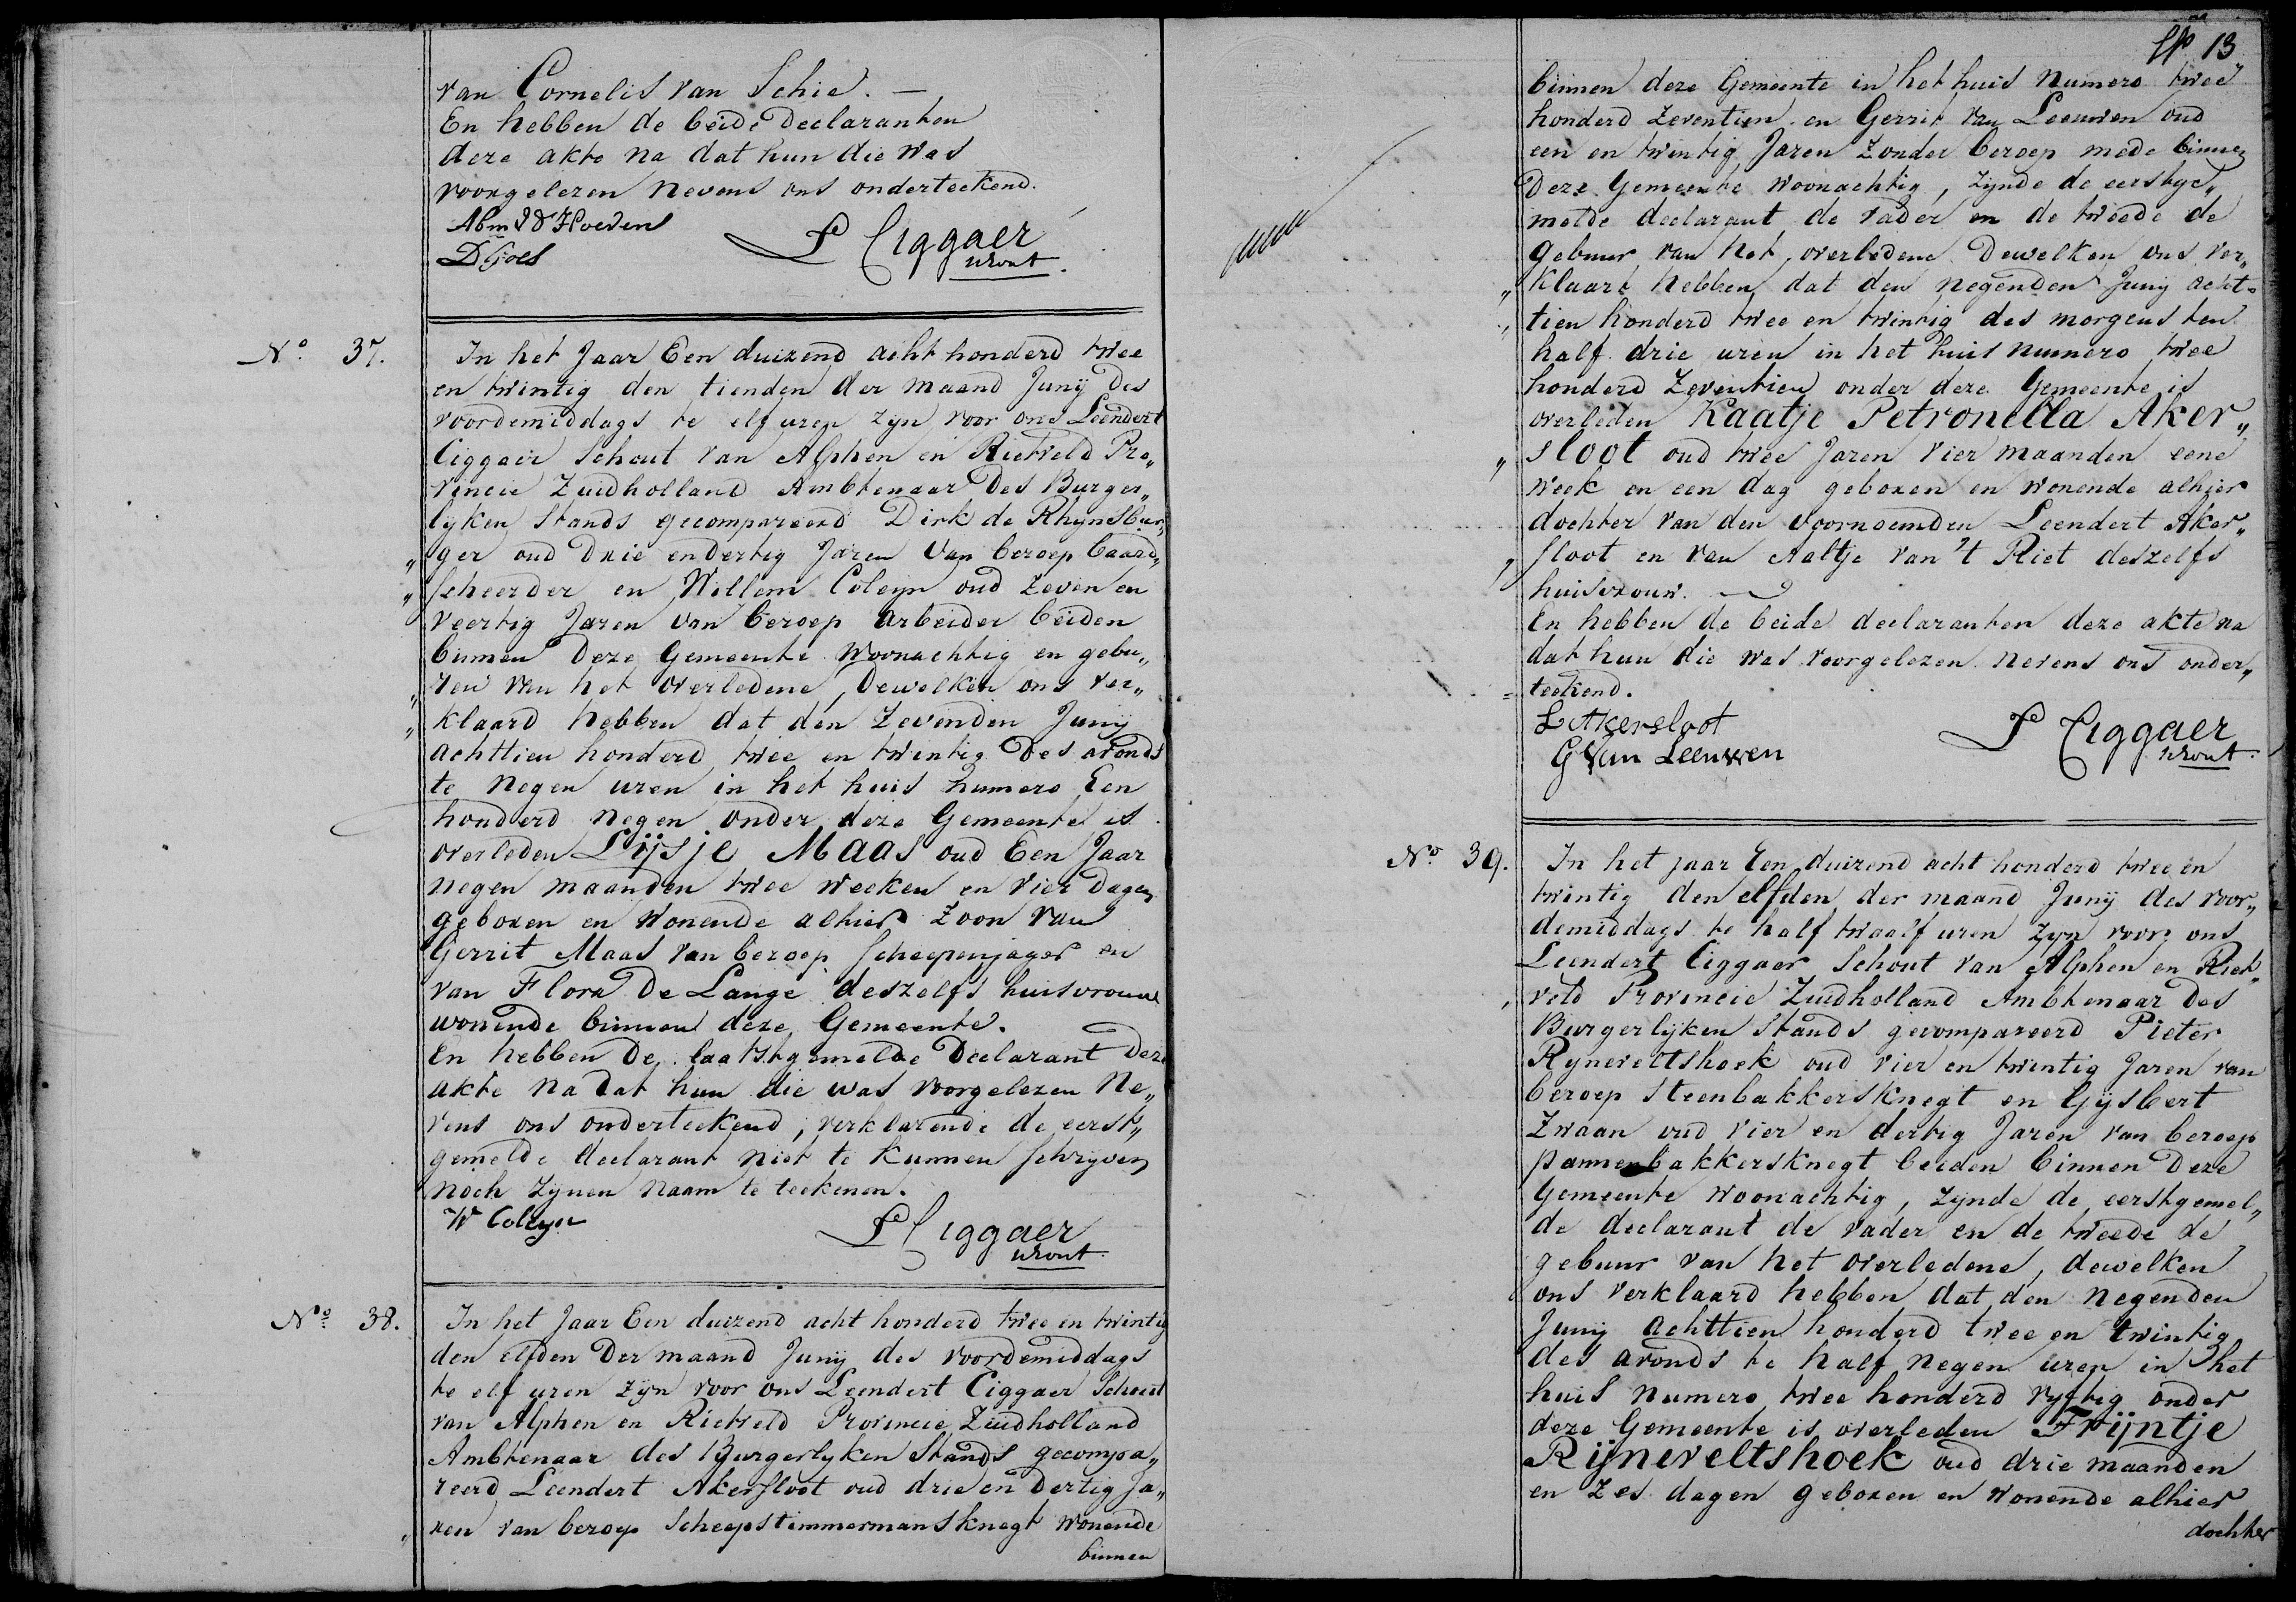 van Cornelis van Schie. —
En hebben de beide declaranten
deze akte na dat hun die was
voorgelezen nevens ons onderteekend.
D Goes
L Ciggaer
schout.
No. 37.
In het Jaar Een duizend acht honderd twee
en twintig den tienden der maand Junij des
voordemiddags te elf uren zyn voor ons Leendert
Ciggaer Schout van Alphen en Rietveld Pro„
vincie Zuidholland Ambtenaar des Burger„
lyken Stands gecompareerd Dirk de Rhynsbur„
„ger oud drie en dertig Jaren van beroep baard„
„scheerder en Willem Coleyn oud zeven en
veertig Jaren van beroep arbeider beiden
binnen deze Gemeente woonachtig en gebu„
„ren van het overledene, dewelken ons ver„
„klaard hebben dat den zevenden Junij
achttien honderd twee en twintig des avonds
te negen uren in het huis numero Een
honderd negen onder deze Gemeente is
overleden Lijsje Maas oud Een Jaar
negen maanden twee weeken en vier dagen
geboren en wonende alhier zoon van
Gerrit Maas van beroep scheepenjager en
van Flora de Lange deszelfs huisvrouw
wonende binnen deze Gemeente.
En hebben de laatstgemelde declarant deze
akte na dat hun die was voorgelezen Ne„
vens ons onderteekend, verklarende de eerst„
gemelde declarant niet te kunnen schryven
noch zynen naam te teekenen.
W Coleyn
L Ciggaer
schout.
No. 38.
In het Jaar Een duizend acht honderd twee en twintig
den elfden der maand Junij des voordemiddags
te elf uren zyn voor ons Leendert Ciggaer Schout
van Alphen en Rietveld Provincie Zuidholland
Ambtenaar des Burgerlyken Stands gecompa„
reerd Leendert Akersloot oud drie en dertig Ja„
„ren van beroep Scheepstimmermansknegt wonende
binnen
13
binnen deze Gemeente in het huis numero twee
honderd zeventien en Gerrit van Leeuwen oud
een en twintig Jaren zonder beroep mede binnen
deze Gemeente woonachtig, zynde de eerstge„
melde declarant de vader en de tweede de
gebuur van het overledene dewelken ons ver„
„klaart hebben dat den negenden Junij acht„
„tien honderd twee en twintig des morgens ten
half drie uren in het huis numero twee
honderd zeventien onder deze Gemeente is
overleden Kaatje Petronella Aker„
„sloot oud twee Jaren vier maanden eene
week en een dag geboren en wonende alhier
dochter van den voornoemden Leendert Aker„
„sloot en van Aaltje van 't Riet deszelfs
huisvrouw.
En hebben de beide declaranten deze akte na
dat hun die was voorgelezen nevens ons onder„
„teekend.
L Akersloot
G Van Leeuwen
L Ciggaer
schout.
No. 39.
In het jaar Een duizend acht honderd twee en
twintig den elfden der maand Junij des voor„
demiddags te half twaalf uren zyn voor ons
Leendert Ciggaer Schout van Alphen en Riet„
„veld Provincie Zuidholland Ambtenaar des
Burgerlyken Stands gecompareerd Pieter
Ryneveltshoek oud vier en twintig Jaren van
beroep steenbakkersknegt en Gysbert
Zwaan oud vier en dertig Jaren van beroep
pannenbakkersknegt beiden binnen deze
Gemeente woonachtig, zynde de eerstgemel„
de declarant de vader en de tweede de
gebuur van het overledene, dewelken
ons verklaard hebben dat den negenden
Junij achttien honderd twee en twintig
des avonds te half negen uren in het
huis numero twee honderd vyftig onder
deze Gemeente is overleden Trijntje
Rijneveltshoek oud drie maanden
en zes dagen geboren en wonende alhier
dochter